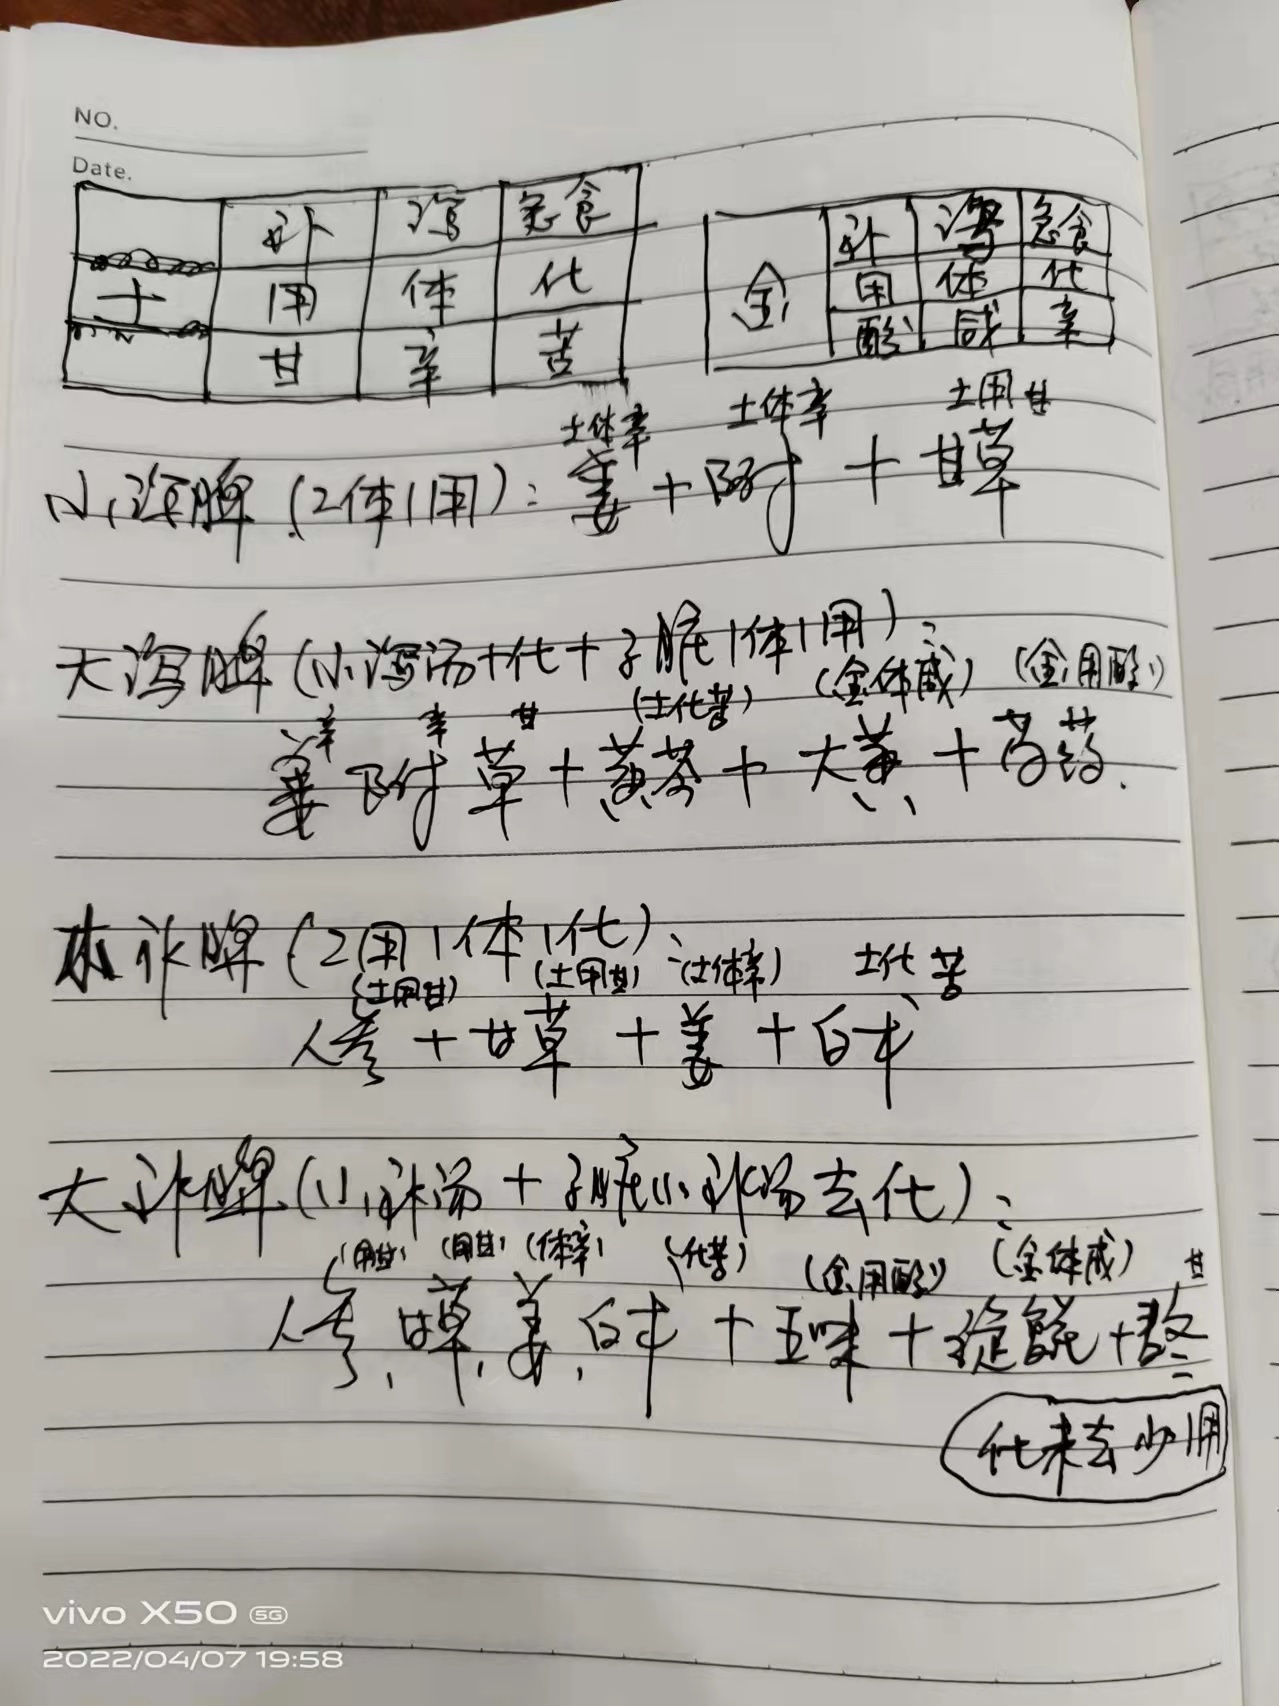 NO.
Date.
补 泻 急食
土 用 体 化
甘 辛 苦
补 泻 急食
金 用 体 化
酸 咸 辛
土体辛 土体辛 土用甘
小泻脾（2体1用）：姜＋附＋甘草
大泻脾（小泻汤＋化＋子脏1体1用）：
（土化苦）（金体咸）（金用酸）
辛 辛 甘
姜附草＋黄芩＋大黄＋芍药.
补脾（2用1体1化）：
（土用甘）（土用甘）（土体辛） 土化苦
人参＋甘草＋姜＋白术
大补脾（小补汤＋子脏小补汤去化）：
（用甘）（用甘）（体辛）（化苦）（金用酸）（金体咸） 甘
人参、甘草、姜、白术＋五味＋旋覆＋
化未去少1用
vivo X50 5G
2022/04/07 19:58